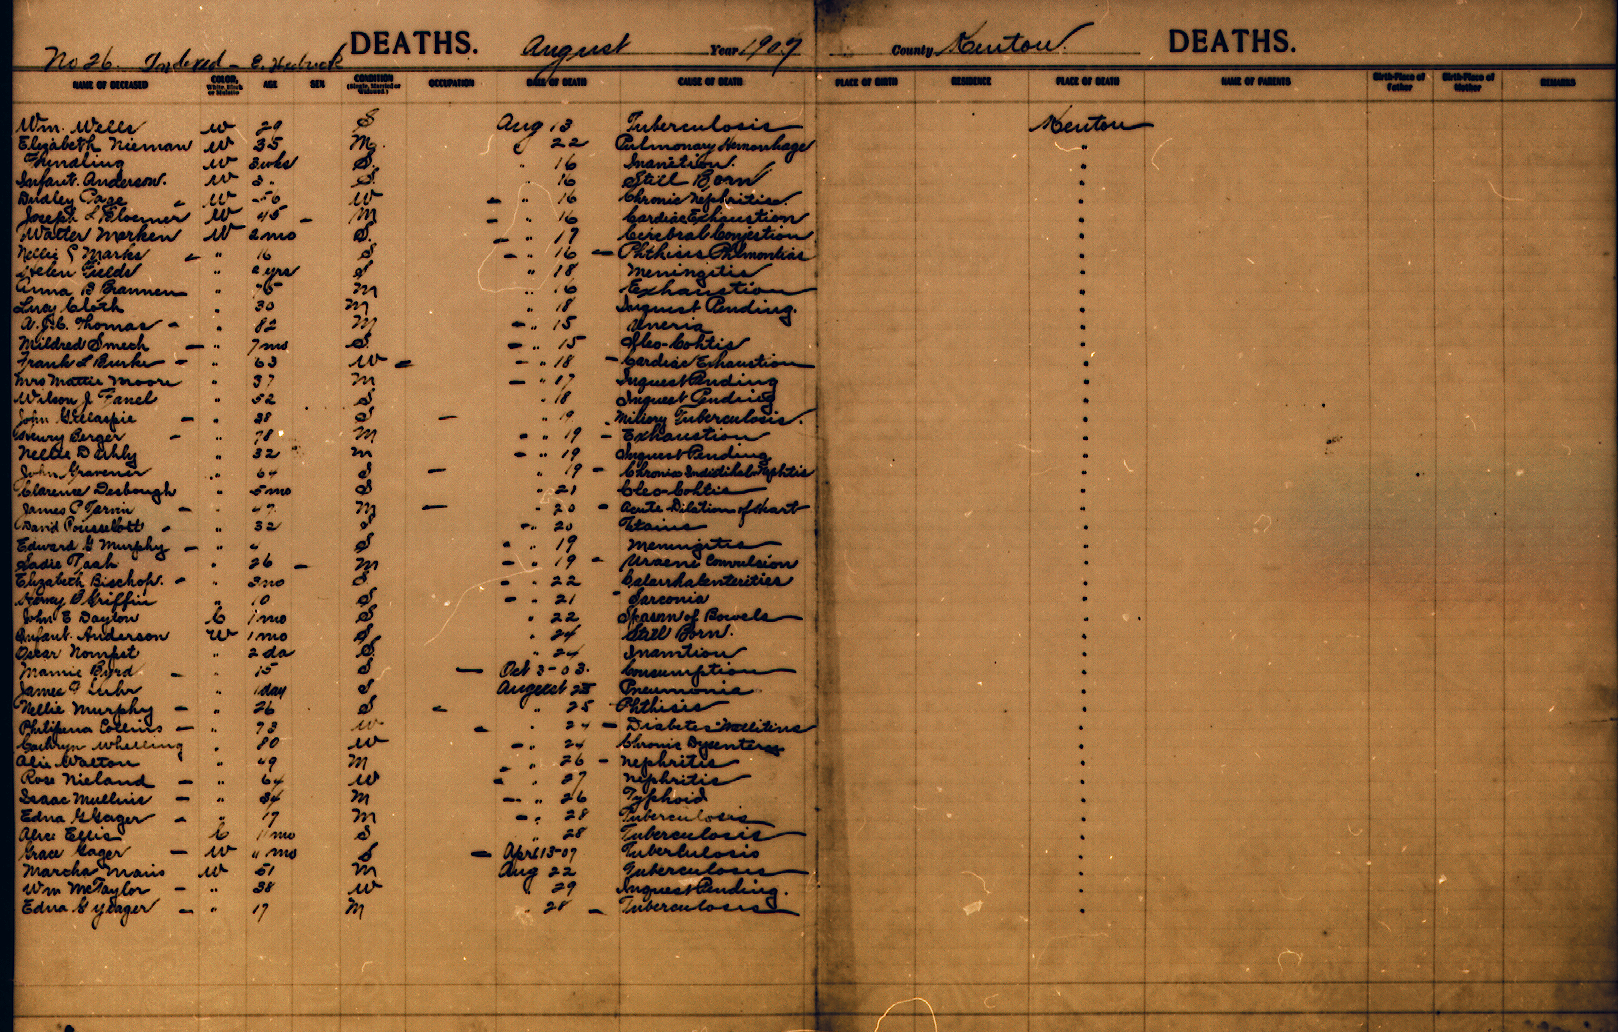 DEATHS. August Year 1907 County Kenton DEATHS.
No 26. Indexed - E.
NAME OF DECEASED COLOR, White, Black or Mulatto AGE SEX CONDITION (Single, Married or Widowed.) OCCUPATION DATE OF DEATH CAUSE OF DEATH PLACE OF BIRTH RESIDENCE PLACE OF DEATH NAME OF PARENTS Birth-Place of Father Birth-Place of Mother REMARKS
Wm. Wells W 29 S Aug 13 Tuberculosis Kenton
Elizabeth Nieman W 35 M. " 22 Pulmonary Hemorrhage "
Fundling W 3 wks S. " 16 Inanition. "
Infant. Anderson. W 3 " S. " 16 Still Born "
Dudley Page W 56 W " 16 Chronic Nephritis. "
Joseph L Bloemer W 45 - M " 16 Cardiac Exhaustion "
Walter Merken W 2 mo S. " 17 Cerebral Conjestion "
Nellie Marks " 16 S " 16 Phthisis "
Helen Fields " 2 yrs S " 18 Meningitis "
Anna B Brannen " 75 M " 16 Exhaustion "
Lucy Cloth " 30 M " 18 Inquest Pending. "
Thomas " 82 M " 15 "
Mildred Smech " 7 mo S " 15 Ileo-Cohtis "
Frank L Burke " 63 W " 18 Cardiac Exhaustion "
Mrs Mattie Moore " 37 M " 17 Inquest Pending "
Wilson J Fanel " 52 S " 18 Inquest Pending "
John Gillaspie " 38 S " 19 Miliery Tuberculosis. "
Henry Berger " 78 M " 19 Exhaustion "
Nellie " 32 M " 19 Inquest Pending "
John Gravener " 64 S " 19 Chronic "
Clarence Desbough " 5 mo S " 21 "
James C " 47 M " 20 Acute Dilation of Heart "
David " 32 S " 20 "
Edward G Murphy " 4 S " 19 Meningitis "
Sadie Tash " 26 - M " 19 Convulsion "
Elizabeth Bischof. " 3 mo S. " 22 "
Griffin " 10 S " 21 Sarconia "
John E Dayton C 1 mo S " 22 Spasm of Bowels "
Infant. Anderson W 1 mo S " 24 Still Born. "
Oscar Nompst " 2 da S " 24 "
Mamie Byrd " 15 S Oct 3-03. Consumption "
James Luhr " 1 day S August "
Nellie Murphy " 26 S " 25 Phthisis "
Philipena Collins " 73 W " 24 Diabetes "
Cathryn Whelling " 80 W " 24 Chronic Dysentery "
Alie Walton " 49 M " 26 Nephritis "
Rose Nieland " 64 W " 27 Nephritis "
Isaac Mullins " 34 M " 26 Typhoid "
Edna " 17 M " 28 Tuberculosis "
Alice Ellis C 11 mo S " 28 Tuberculosis "
Grace W " mo S April 13-07 Tuberculosis "
Martha W 51 M Aug 22 Tuberculosis "
Wm McTaylor " 38 W " 29 Inquest Pending. "
Edna G Yeager " 17 M " 28 Tuberculosis "